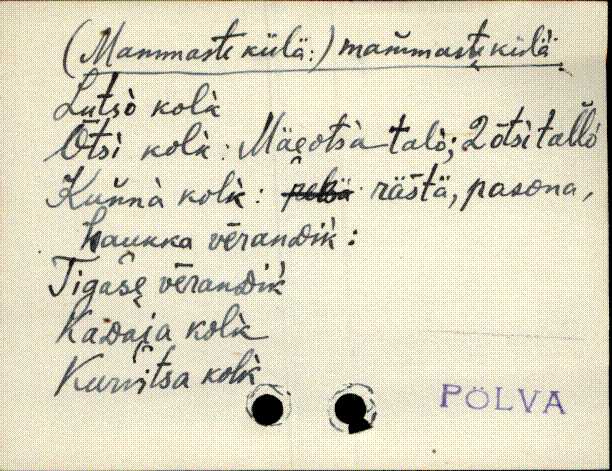 (Mammaste külä:) mam̆mastę külä.
Lutsò kolk̀
Ōtsì kolk̀: Mäeotsà talò; 2 ōtsì tal̆lò
Kun̆nà kolk̀: rästä, pasena,
haukka vērandik̀:
Tigasę̂ vērandik̀
Kadaja kolk̀
Kurvitsa kolk̀
PÕLVA